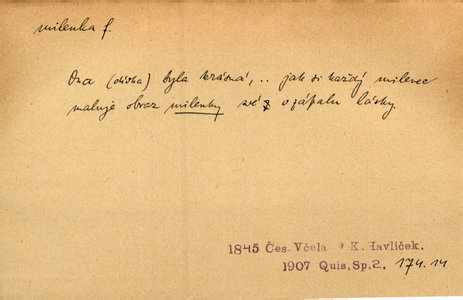 milenka f.
Ona (dívka) byla krásná, .. jak si každý milenec
maluje obraz milenky své v zápalu lásky.
1845 Čes. Včela K. Havlíček.
1907 Quis, Sp. 2. 174.14